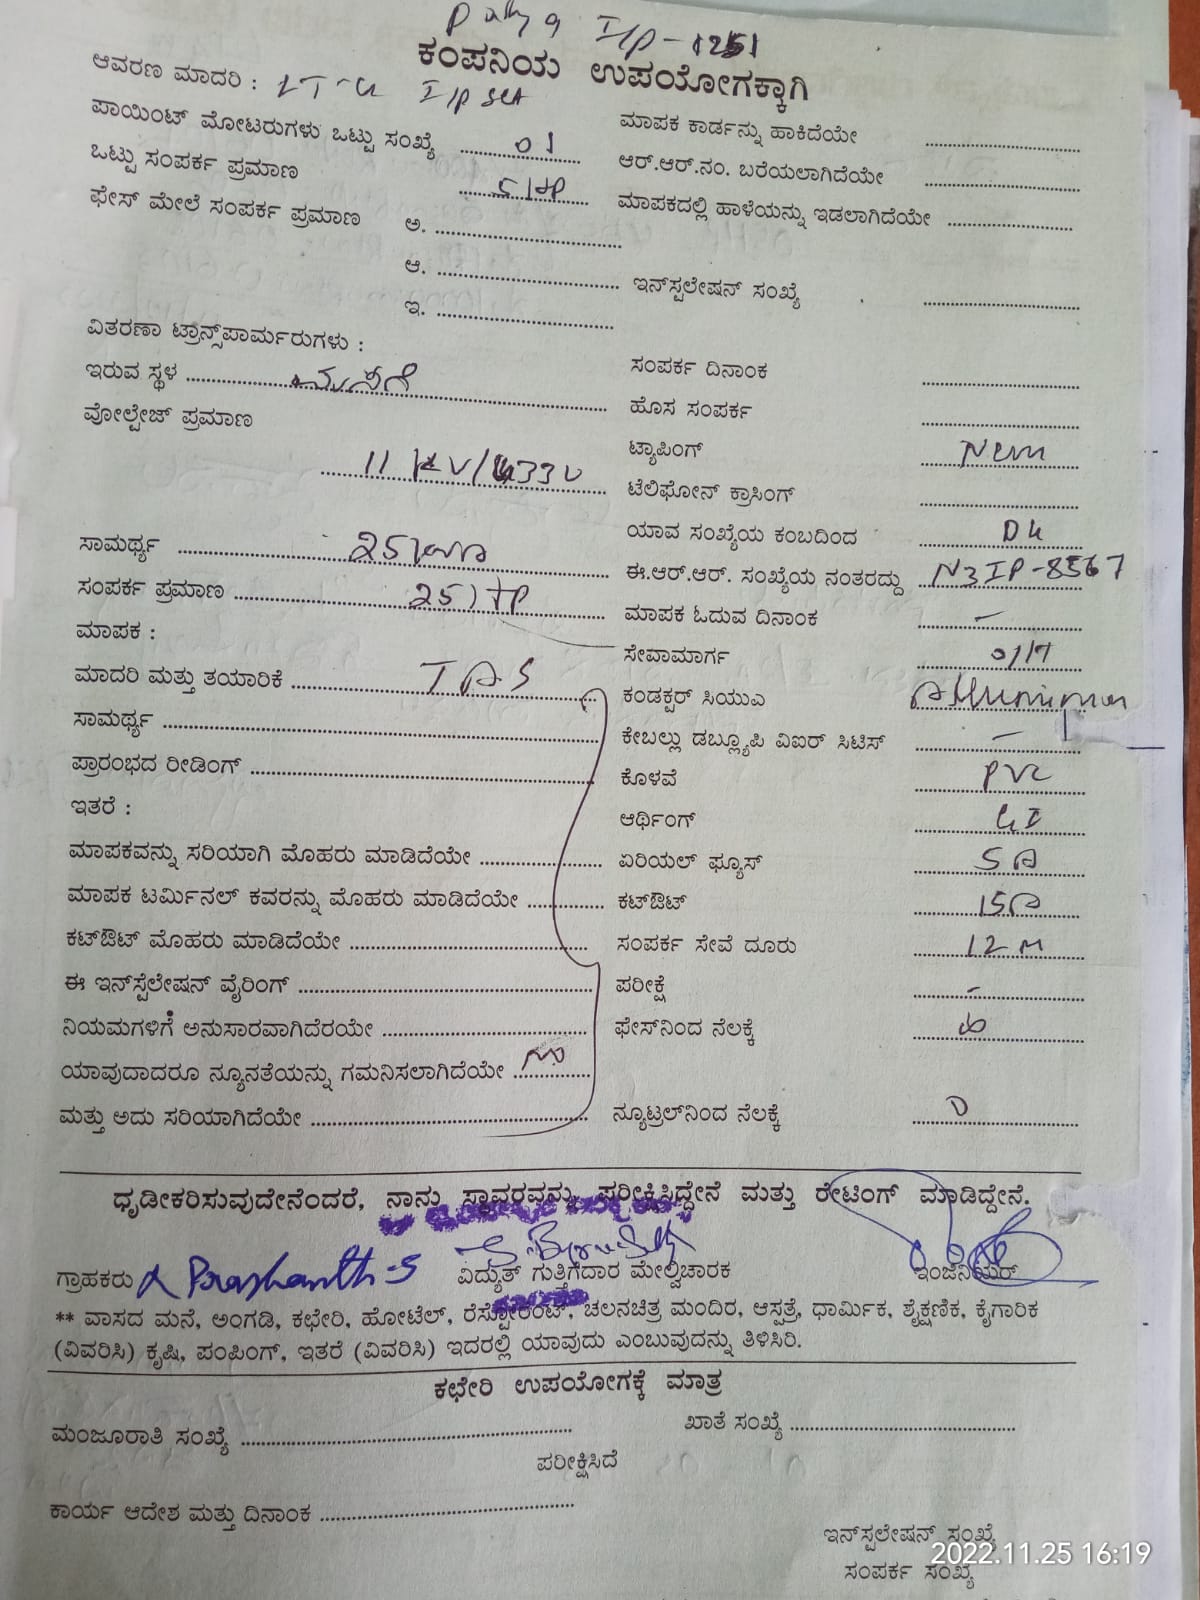 I/P-1251
ಕಂಪನಿಯ ಉಪಯೋಗಕ್ಕಾಗಿ
ಆವರಣ ಮಾದರಿ : LT-4 I/P set
ಪಾಯಿಂಟ್ ಮೋಟರುಗಳು ಒಟ್ಟು ಸಂಖ್ಯೆ 01 ಮಾಪಕ ಕಾರ್ಡನ್ನು ಹಾಕಿದೆಯೇ
ಒಟ್ಟು ಸಂಪರ್ಕ ಪ್ರಮಾಣ 5HP ಆರ್.ಆರ್.ನಂ. ಬರೆಯಲಾಗಿದೆಯೇ
ಫೇಸ್ ಮೇಲೆ ಸಂಪರ್ಕ ಪ್ರಮಾಣ ಅ. ಮಾಪಕದಲ್ಲಿ ಹಾಳೆಯನ್ನು ಇಡಲಾಗಿದೆಯೇ
ಆ. ಇನ್‌ಸ್ಟಲೇಷನ್ ಸಂಖ್ಯೆ
ಇ.
ವಿತರಣಾ ಟ್ರಾನ್ಸ್‌ಪಾರ್ಮರುಗಳು :
ಇರುವ ಸ್ಥಳ ಸಂಪರ್ಕ ದಿನಾಂಕ
ವೋಲ್ಟೇಜ್ ಪ್ರಮಾಣ ಹೊಸ ಸಂಪರ್ಕ
11 KV/433V ಟ್ಯಾಪಿಂಗ್ New
ಟೆಲಿಫೋನ್ ಕ್ರಾಸಿಂಗ್
ಸಾಮರ್ಥ್ಯ 25 ಯಾವ ಸಂಖ್ಯೆಯ ಕಂಬದಿಂದ
ಸಂಪರ್ಕ ಪ್ರಮಾಣ 25HP ಈ.ಆರ್.ಆರ್. ಸಂಖ್ಯೆಯ ನಂತರದ್ದು N3IP-8567
ಮಾಪಕ : ಮಾಪಕ ಓದುವ ದಿನಾಂಕ -
ಮಾದರಿ ಮತ್ತು ತಯಾರಿಕೆ ಸೇವಾಮಾರ್ಗ O/H
ಸಾಮರ್ಥ್ಯ ಕಂಡಕ್ಟರ್ ಸಿಯುಎ
ಪ್ರಾರಂಭದ ರೀಡಿಂಗ್ ಕೇಬಲ್ಲು ಡಬ್ಲ್ಯೂಪಿ ವಿಐರ್ ಸಿಟಿಸ್ -
ಇತರೆ : ಕೊಳವೆ PVC
ಆರ್ಥಿಂಗ್ GI
ಮಾಪಕವನ್ನು ಸರಿಯಾಗಿ ಮೊಹರು ಮಾಡಿದೆಯೇ ಏರಿಯಲ್ ಫ್ಯೂಸ್ 5A
ಮಾಪಕ ಟರ್ಮಿನಲ್ ಕವರನ್ನು ಮೊಹರು ಮಾಡಿದೆಯೇ ಕಟ್‌ಔಟ್ 15A
ಕಟ್‌ಔಟ್ ಮೊಹರು ಮಾಡಿದೆಯೇ ಸಂಪರ್ಕ ಸೇವೆ ದೂರು 12 M
ಈ ಇನ್‌ಸ್ಟೆಲೇಷನ್ ವೈರಿಂಗ್ ಪರೀಕ್ಷೆ -
ನಿಯಮಗಳಿಗೆ ಅನುಸಾರವಾಗಿದೆರಯೇ ಫೇಸ್‌ನಿಂದ ನೆಲಕ್ಕೆ
ಯಾವುದಾದರೂ ನ್ಯೂನತೆಯನ್ನು ಗಮನಿಸಲಾಗಿದೆಯೇ
ಮತ್ತು ಅದು ಸರಿಯಾಗಿದೆಯೇ ನ್ಯೂಟ್ರಲ್‌ನಿಂದ ನೆಲಕ್ಕೆ
ಧೃಡೀಕರಿಸುವುದೇನೆಂದರೆ, ನಾನು ಸ್ಥಾವರವನ್ನು ಪರೀಕ್ಷಿಸಿದ್ದೇನೆ ಮತ್ತು ರೇಟಿಂಗ್ ಮಾಡಿದ್ದೇನೆ.
ಗ್ರಾಹಕರು Prashanth-S ವಿದ್ಯುತ್ ಗುತ್ತಿಗೆದಾರ ಮೇಲ್ವಿಚಾರಕ ಇಂಜಿನಿಯರ್
** ವಾಸದ ಮನೆ, ಅಂಗಡಿ, ಕಛೇರಿ, ಹೋಟೆಲ್, ರೆಸ್ಟೋರೆಂಟ್, ಚಲನಚಿತ್ರ ಮಂದಿರ, ಆಸ್ಪತ್ರೆ, ಧಾರ್ಮಿಕ, ಶೈಕ್ಷಣಿಕ, ಕೈಗಾರಿಕ
(ವಿವರಿಸಿ) ಕೃಷಿ, ಪಂಪಿಂಗ್, ಇತರೆ (ವಿವರಿಸಿ) ಇದರಲ್ಲಿ ಯಾವುದು ಎಂಬುವುದನ್ನು ತಿಳಿಸಿರಿ.
ಕಛೇರಿ ಉಪಯೋಗಕ್ಕೆ ಮಾತ್ರ
ಮಂಜೂರಾತಿ ಸಂಖ್ಯೆ ಖಾತೆ ಸಂಖ್ಯೆ
ಪರೀಕ್ಷಿಸಿದೆ
ಕಾರ್ಯ ಆದೇಶ ಮತ್ತು ದಿನಾಂಕ
ಇನ್‌ಸ್ಟಲೇಷನ್ ಸಂಖ್ಯೆ
2022.11.25 16:19
ಸಂಪರ್ಕ ಸಂಖ್ಯೆ